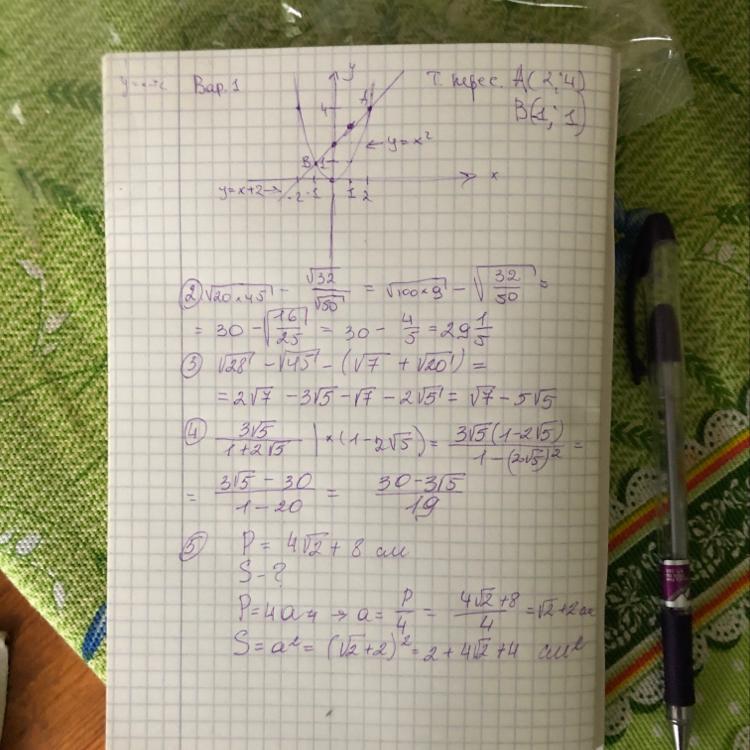 Вар. 1
т. перес. A(2; 4)
B(-1; 1)
y
4
A
y=x²
B 1
x
y=x+2
-2 -1 1 2
② √20×45 - √32/√50 = √100×9 - √32/50 =
= 30 - √16/25 = 30 - 4/5 = 29 1/5
③ √28 - √45 - (√7 + √20) =
= 2√7 - 3√5 - √7 - 2√5 = √7 - 5√5
④ 3√5/1+2√5 | ×(1-2√5) = 3√5(1-2√5)/1-(2√5)² =
= 3√5 - 30/1-20 = 30-3√5/19
⑤ P = 4√2 + 8 см
S - ?
P=4a → a = P/4 = 4√2+8/4 = √2+2 см
S = a² = (√2+2)² = 2+4√2+4 см²